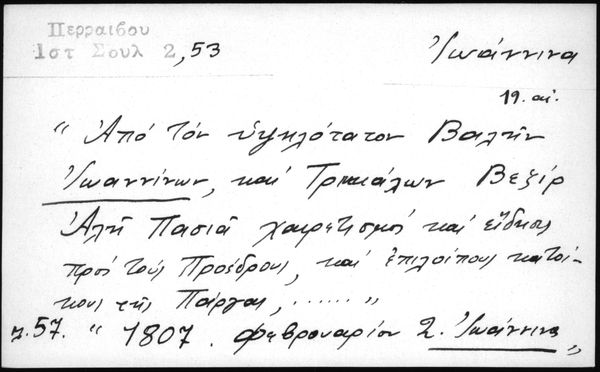 Περραιβου
Ιστ Σουλ 2, 53
Ἰωάννινα
19. αἰ.
"Ἀπό τόν ὑψηλότατον Βαλῆν
Ἰωαννίνων, καί Τρικάλων Βεζίρ
Ἀλῆ Πασιᾶ χαιρετισμοί καί εἴδησις
πρός τούς Προέδρους, καί ἐπιλοίπους κατοί-
κους τῆς Πάργας, ...... "
σ. 57. " 1807. Φεβρουαρίου 2. Ἰωάννινα"